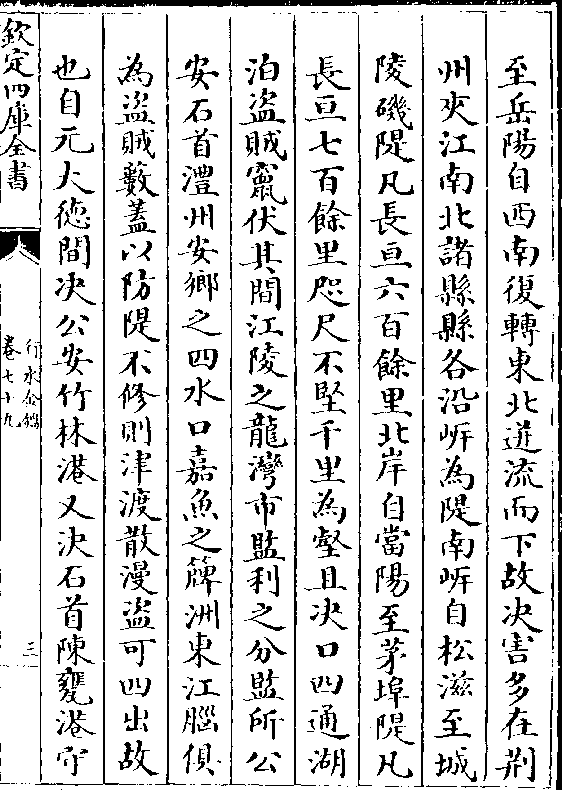 至岳陽自西南復轉東北迸流而下故决害多在荆
州夾江南北諸縣縣各沿㟁為隄南㟁自松滋至城
陵磯隄凡長亘六百餘里北岸自當陽至茅埠隄凡
長亘七百餘里咫尺不堅千里為壑且决口四通湖
泊盜賊竄伏其間江陵之龍灣市監利之分監所公
安石首澧州安鄉之四水口嘉魚之簰洲東江腦俱
為盜賊藪蓋以防隄不修則津渡散漫盜可四出故
也自元大德間决公安竹林港又决石首陳甕港守
欽定四庫全書
行水金鑑
卷七十九
三